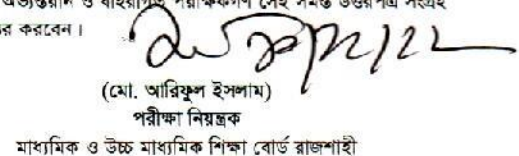 অভ্যন্তরীন ও বহিরাগত পরীক্ষকগণ সেই সমস্ত উত্তরপত্র সংগ্রহ
করবেন।
(মো. আরিফুল ইসলাম)
পরীক্ষা নিয়ন্ত্রক
মাধ্যমিক ও উচ্চ মাধ্যমিক শিক্ষা বোর্ড রাজশাহী